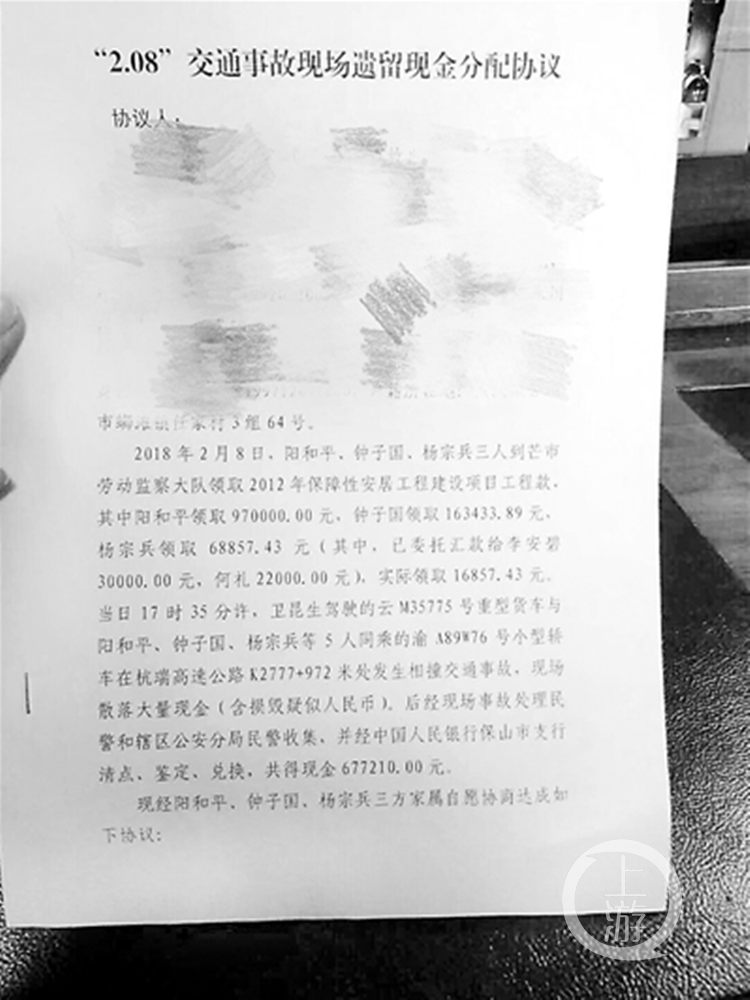 “2.08” 交通事故现场遗留现金分配协议
协议人：
市 镇任家村3组64号。
2018年2月8日，阳和平、钟子国、杨宗兵三人到芒市
劳动监察大队领取2012年保障性安居工程建设项目工程款，
其中阳和平领取970000.00元，钟子国领取163433.89元，
杨宗兵领取 68857.43 元（其中，已委托汇款给李安碧
30000.00元，何札22000.00元），实际领取16857.43元。
当日17时35分许，卫昆生驾驶的云M35775号重型货车与
阳和平、钟子国、杨宗兵等5人同乘的渝A89W76号小型轿
车在杭瑞高速公路K2777+972米处发生相撞交通事故，现场
散落大量现金（含损毁疑似人民币）。后经现场事故处理民
警和辖区公安分局民警收集，并经中国人民银行保山市支行
清点、鉴定、兑换，共得现金677210.00元。
现经阳和平、钟子国、杨宗兵三方家属自愿协商达成如
下协议：
上游